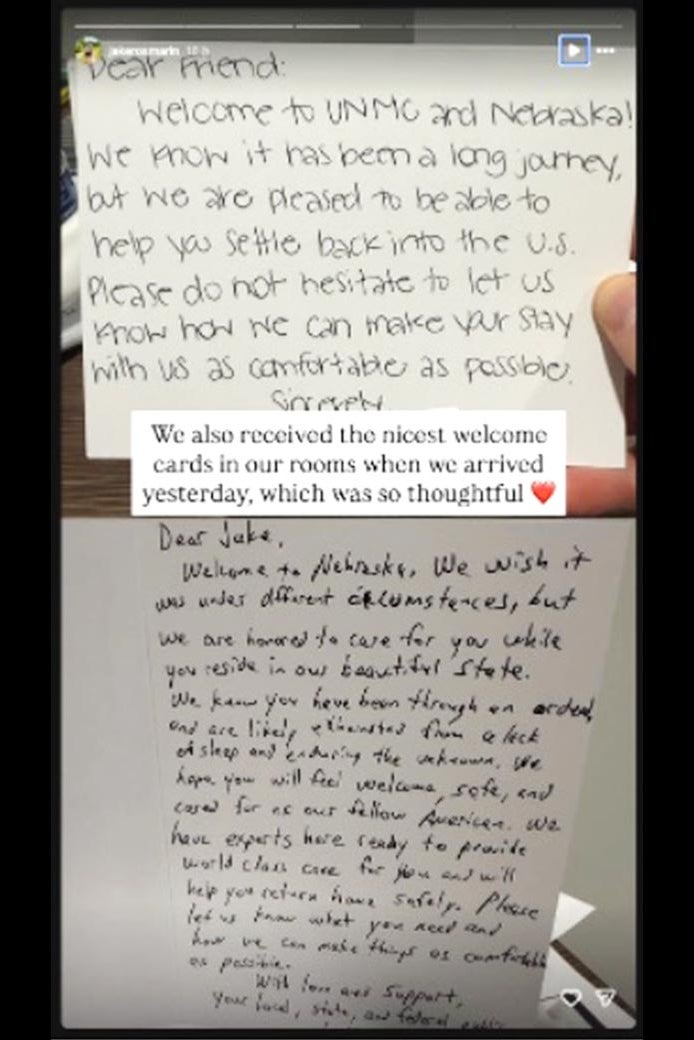 18 h
Dear Friend:
Welcome to UNMC and Nebraska!
We know it has been a long journey,
but we are pleased to be able to
help you settle back into the U.S.
Please do not hesitate to let us
know how we can make your stay
with us as comfortable as possible.
Sincerely,
We also received the nicest welcome
cards in our rooms when we arrived
yesterday, which was so thoughtful ❤️
Dear Jake,
Welcome to Nebraska. We wish it
was under different circumstances, but
we are honored to care for you while
you reside in our beautiful state.
We know you have been through an ordeal,
and are likely exhausted from a lack
of sleep and enduring the unknown. We
hope you will feel welcome, safe, and
cared for as our fellow American. We
have experts here ready to provide
world class care for you and will
help you return home safely. Please
let us know what you need and
how we can make things as comfortable
as possible.
With love and support,
your local, state, and federal public